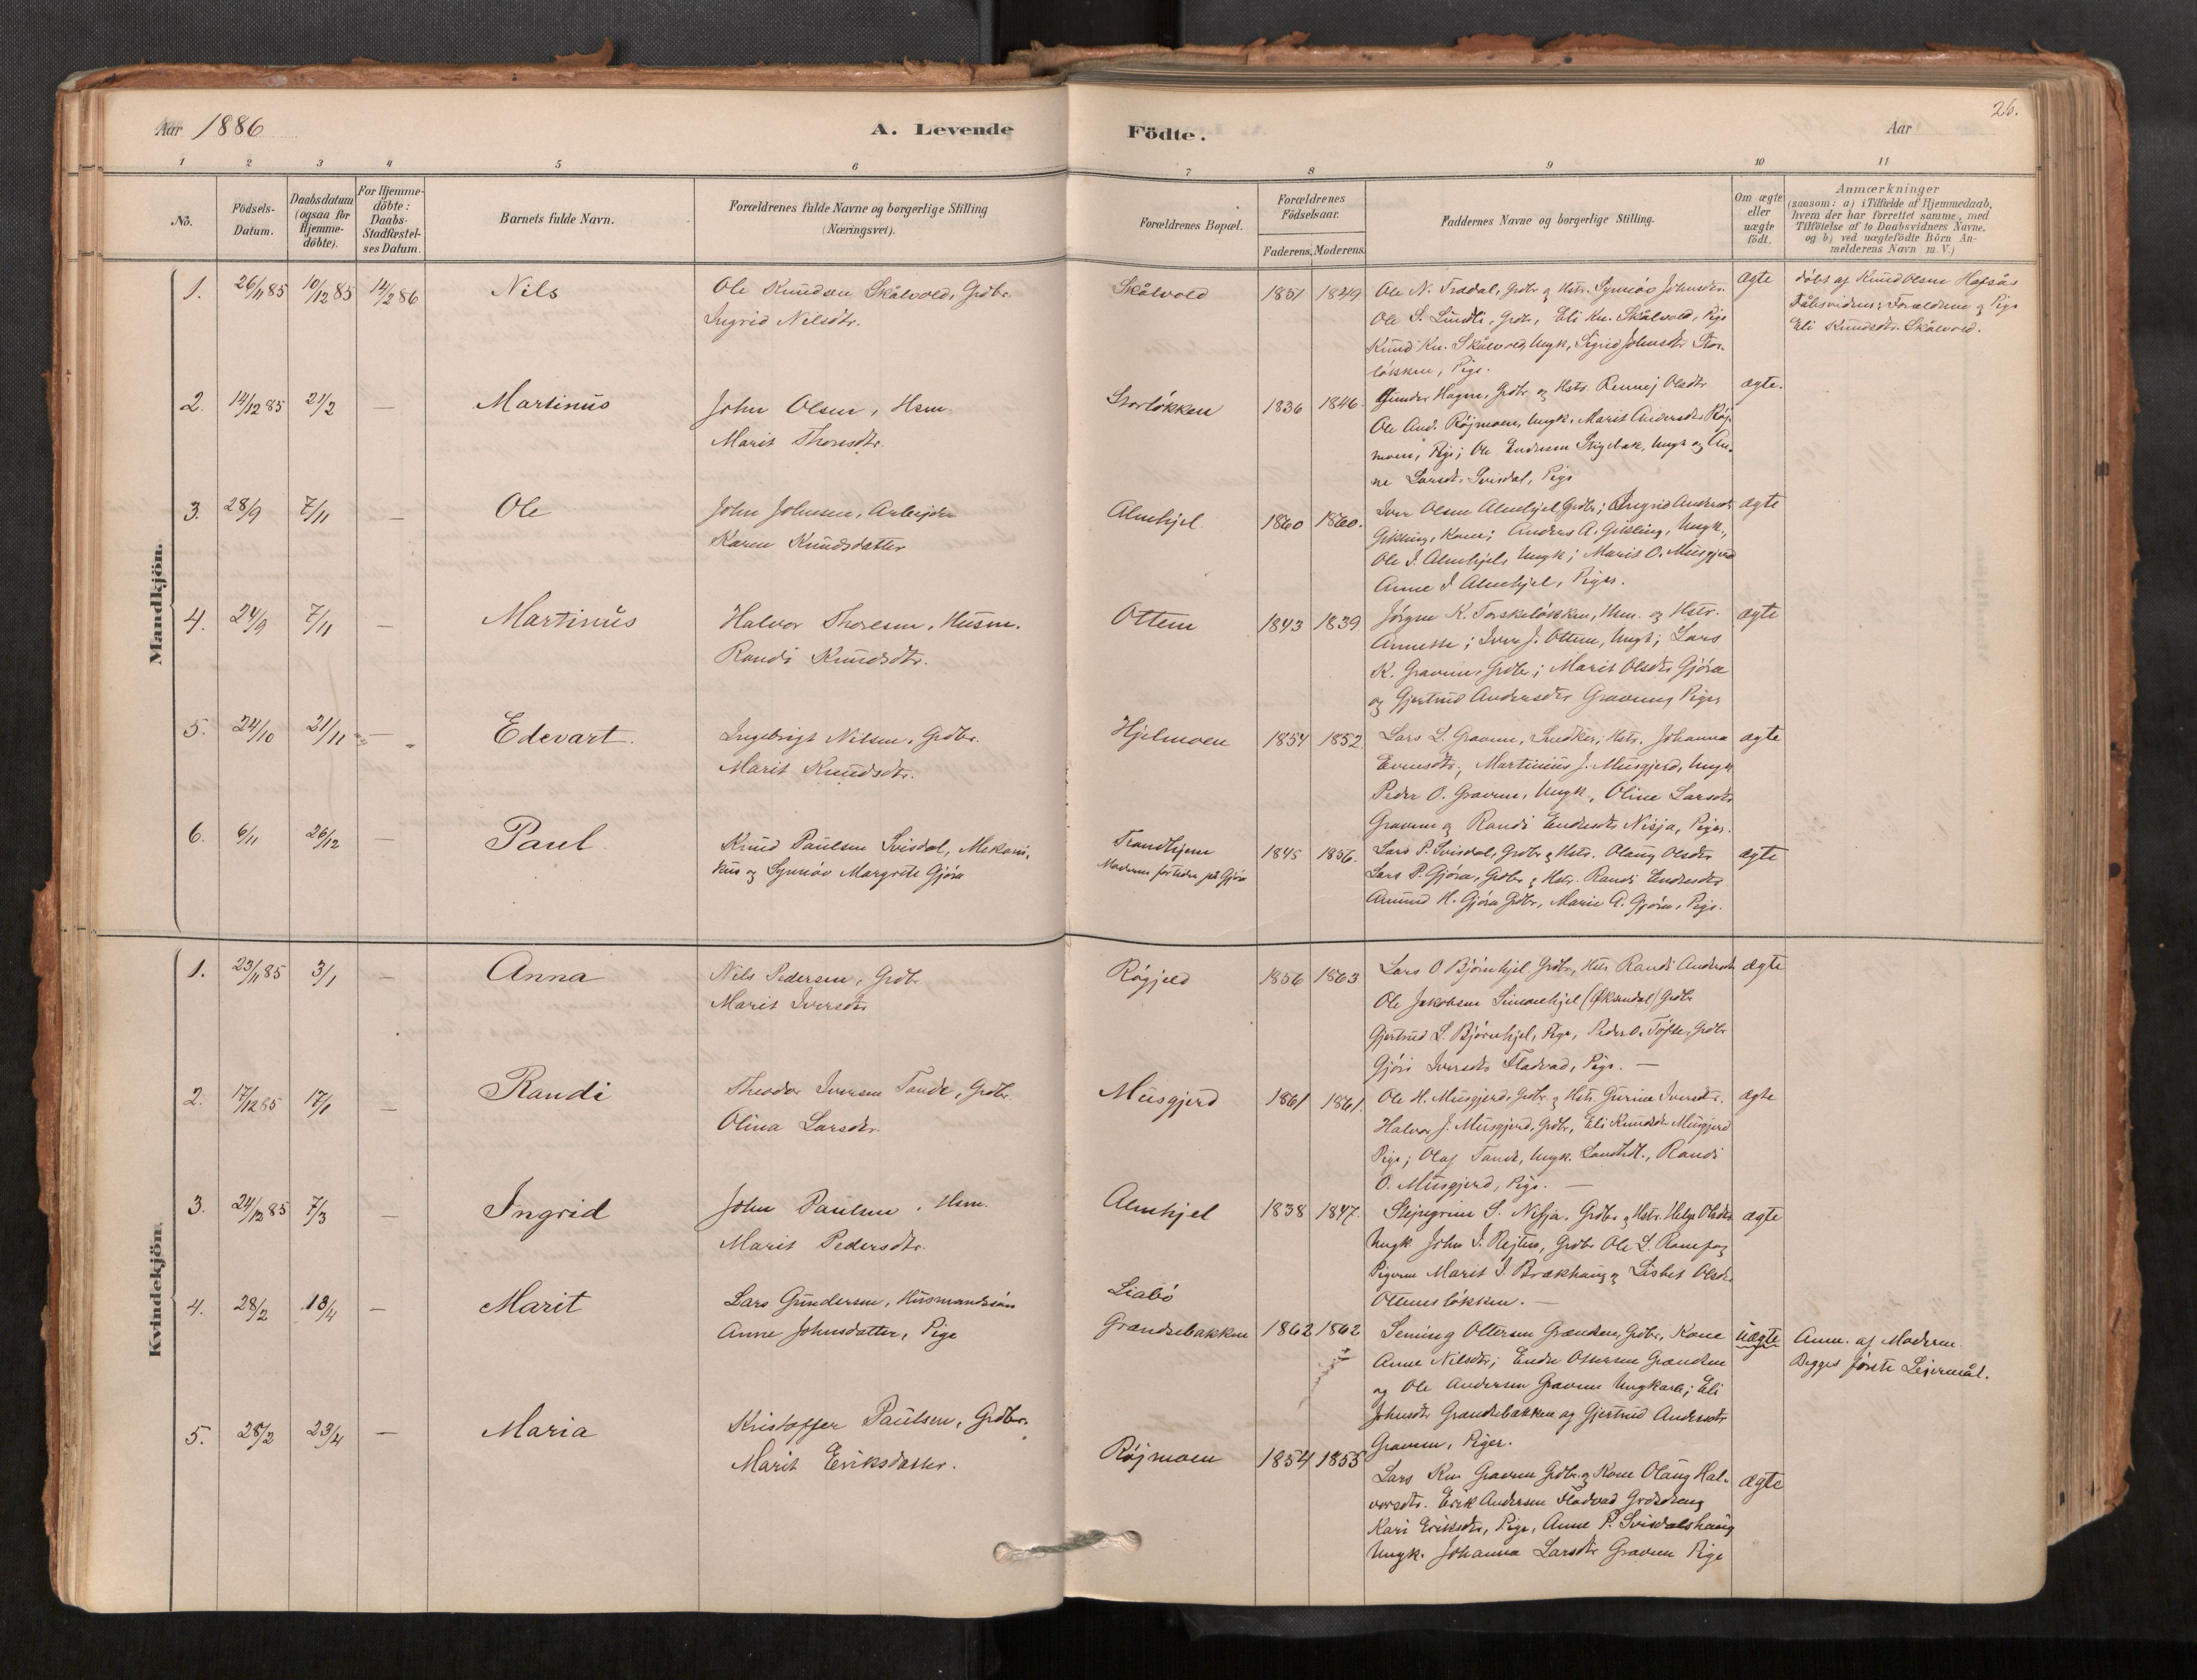 Aar 1886
A. Levende
Födte.
Aar
26.
1 2 3 4 5 6 7 8 9 10 11
No.
Födsels-
Datum.
Daabsdatum
(ogsaa for
Hjemme-
döbte).
For Hjemme-
döbte:
Daabs-
Stadfæstel-
ses Datum.
Barnets fulde Navn.
Forældrenes fulde Navne og borgerlige Stilling
(Næringsvei).
Forældrenes Bopæl.
Forældrenes
Födselsaar.
Faderens. Moderens.
Faddernes Navne og borgerlige Stilling.
Om ægte
eller
uægte
födt.
Anmærkninger
(saasom: a) i Tilfælde af Hjemmedaab,
hvem der har forrettet samme, med
Tilföielse af to Daabsvidners Navne,
og b) ved uægtefödte Börn An-
melderens Navn m. V.)
Mandkjön.
1. 26/11 85 10/12 85 14/2 86 Nils
Ole Knudsen Skålvold, Grdbr.
Ingrid Nilsdtr.
Skålvold 1851 1849
Ole N. Trædal, Grdbr og Hstr. Synnöv Johnsdr.
Ole S. Lundli, Grdbr, Eli Kn. Skålvold, Pige
Knud Kn. Skålvold, Ungk, Sigrid Johnsdtr Stor-
løkken, Pige.
ægte
døbt af Knud Olsen Hafsås
Dåbsvidner: Forældrene og Pige
Eli Knudsdtr. Skålvold.
2. 14/12 85 21/2 — Martinus
John Olsen, Hsm.
Marit Thoresdtr.
Storløkken 1836 1846.
Gunder Hagen, Grdbr og Hstr. Rennej Olsdtr
Ole And. Röjmoen, Ungk. Marit Andersdtr Röj-
moen, Pige; Ole Endresen Stigebak, Ungk og An-
ne Larsdtr Svisdal, Pige
ægte.
3. 28/9 7/11 — Ole
John Johnsen, Arbejder
Karen Knudsdatter
Almhjel 1860 1860.
Iver Olsen Almhjel, Grdbr; Ingrid Andersdtr
Gikling, Kone; Anders A. Gikling, Ungk.,
Ole I. Almhjel, Ungk; Marit O. Musgjerd
Anne I Almhjel, Piger.
ægte
4. 24/9 7/11 — Martinus
Halvor Thoresen, Husm.
Randi Knudsdtr.
Ottem 1843 1839
Jörgen K. Torskeløkken, Hsm. og Hstr.
Annette; Iver J. Ottem, Ungk; Lars
K. Gravem, Grdbr; Marit Olsdtr Gjöra
og Gjertrud Andersdtr Gravem, Piger
ægte
5. 24/10 21/11 — Edevart.
Ingebrigt Nilsen, Grdbr.
Marit Knudsdtr.
Hjelmoen 1854 1852.
Lars L. Gravem, Snedker, Hstr. Johanna
Evensdtr, Martinus J. Musgjerd, Ungk.
Peder O. Gravem, Ungk, Oline Larsdtr
Gravem og Randi Endresdtr Nisja, Piger.
ægte
6. 6/11 26/12 — Paul
Knud Paulsen Svisdal, Mekani-
kus og Synnöv Margrete Gjöra
Trondhjem
Moderens for tiden på Gjöra
1845 1856.
Lars P. Svisdal, Grdbr og Hstr. Olaug Olsdtr
Lars P. Gjöra, Grdbr og Hstr. Randi Endresdtr
Amund H. Gjöra Grdbr, Marie A. Gjöra, Pige.
ægte
Kvindekjön.
1. 23/11 85 3/1 — Anna
Nils Pedersen, Grdbr
Marit Iversdtr
Røgjeld 1856 1863
Lars O Björnhjel, Grdbr, Hstr Randi Andersdtr
Ole Jakobsen Simonhjel (Øksendal) Grdbr
Gjertrud L. Björnhjel, Pige, Peder O. Töfte, Grdbr
Gjöri Iversdtr Fladvad, Pige. —
ægte
2. 17/12 85 17/1 — Randi
Theodor Iversen Tande, Grdbr.
Olina Larsdtr.
Musgjerd 1861 1861.
Ole H. Musgjerd, Grdbr. og Hstr. Gurine Iversdtr.
Halvor J. Musgjerd, Grdbr, Eli Knudsdtr Musgjerd
Pige; Olaf Tande, Ungk. , Randi
O. Musgjerd, Pige. —
ægte
3. 24/12 85 7/3 — Ingrid
John Paulsen, Hsm.
Marit Pedersdtr.
Almhjel 1838 1847.
S. Nisja, Grdbr og Hstr. Helga Olsdtr
Ungk John I. Rejten, Grdbr Ole L. Romfog
Pigerne Marit J. Brækhaug og Lisbet Olsdtr
Ottemsløkken. —
ægte
4. 28/2 18/4 — Marit
Lars Gundersen, Husmandssön
Anne Johnsdatter, Pige
Liabö
Grændsebakken 1862 1862
Seming Ottersen Grændsen, Grdbr, Kone
Anne Nilsdtr; Endre Ottersen Grændsen
og Ole Andersen Gravem Ungkarle; Eli
Johnsdtr Grændsebakken og Gjertrud Andersdtr
Gravem, Piger.
uægte
Anm. af Moderen.
Begges förste Lejermål.
5. 28/2 23/4 — Maria
Kristoffer Paulsen, Grdbr.
Marit Eriksdatter.
Röjmoen 1854 1855
Lars Kn. Gravem Grdbr. og Kone Olaug Hal-
vorsdtr. Erik Andersen Fladvad Grdbrdreng
Kari Eriksdtr, Pige, Anne P. Svisdalshaug
Ungk. Johanna Larsdtr Gravem Pige
ægte